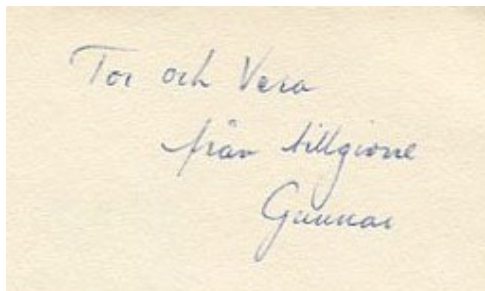 Tor och Vera
från tillgivne
Gunnar